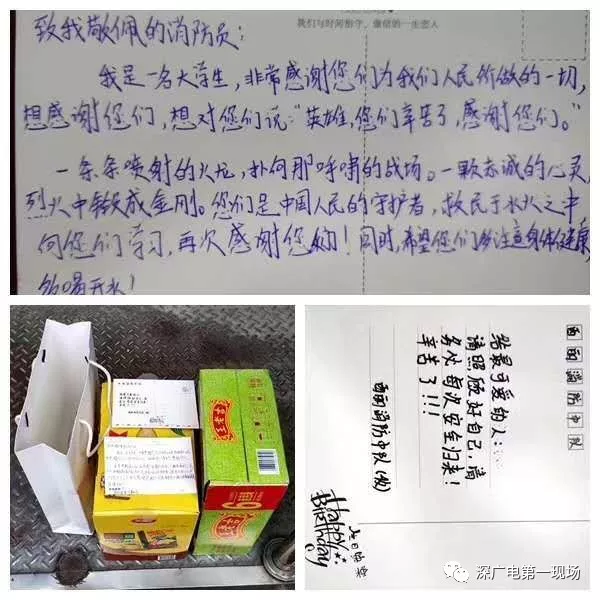 我们与时间恪守，做你的一生恋人
致我敬佩的消防员：
我是一名大学生，非常感谢您们为我们人民所做的一切，
想感谢您们，想对您们说："英雄，您们辛苦了，感谢您们。"
一条条喷射的火龙，扑向那呼啸的战场。一颗赤诚的心灵，
烈火中锻成金刚。您们是中国人民的守护者，救民于水火之中
向您们学习，再次感谢您们！同时，希望您们多注意身体健康，
多喝开水！
王老吉
西固消防中队
给最可爱的人：
请照顾好自己，请
务必每次安全归来！
辛苦了！！！
西固消防中队(收)
生日快乐
Happy
Birthday
深广电第一现场